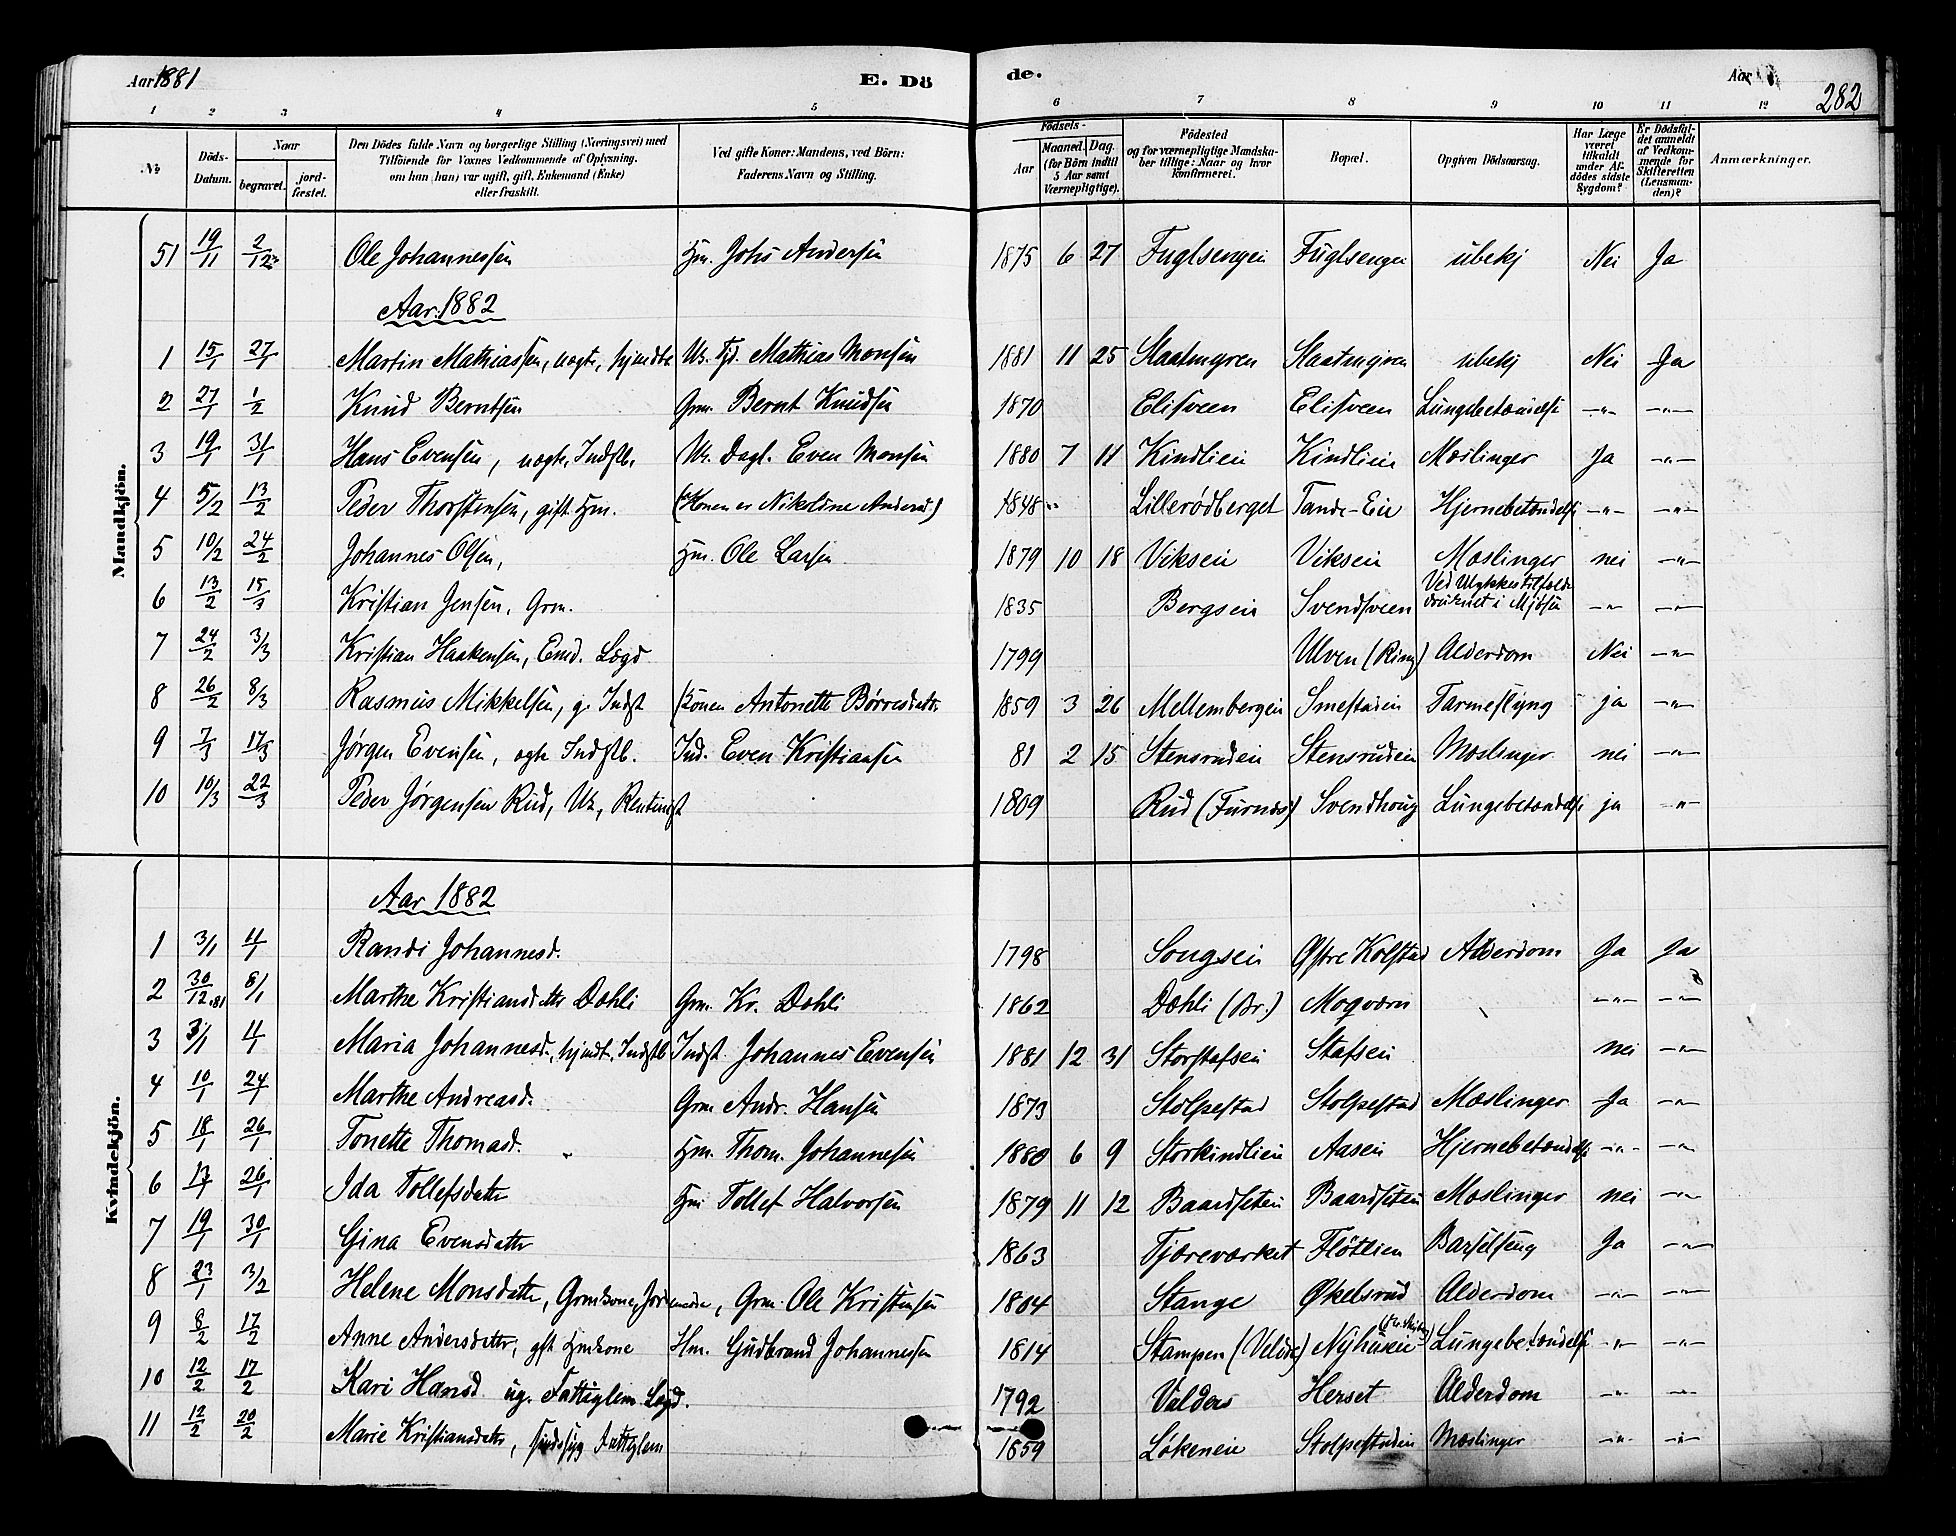 Aar 1881 E. Dö de. Aar 282
1 2 3 4 5 6 7 8 9 10 11 12
No Döds-Datum. Naar begravet. jord-fæstet. Den Dödes fulde Navn og borgerlige Stilling (Næringsvei) med Tilföiende for Voxnes Vedkommende af Oplysning, om han (hun) var ugift, gift, Enkemand (Enke) eller fraskilt. Ved gifte Koner: Mandens, ved Börn: Faderens Navn og Stilling. Födsels- Aar Maaned. Dag. (for Börn indtil 5 Aar samt Værnepligtige). Födested og for værnepligtige Mandska-ber tillige: Naar og hvor konfirmeret. Bopæl. Opgiven Dödsaarsag. Har Læge været tilkaldt under Af-dödes sidste Sygdom? Er Dödsfal-det anmeldt af Vedkom-mende for Skifteretten (Lensman-den)? Anmærkninger.
Mandkjön.
51 19/11 2/12 Ole Johannessen Hm. Johs Andersen 1875 6 27 Fuglsengen Fuglsengen ubekj Nei Ja
Aar 1882
1 15/1 27/1 Martin Mathiassen, uegte, hjemdbt Uk. Tjd. Mathias Monsen 1881 11 25 Slaatmyren Slaatmyren ubekj Nei Ja
2 27/1 1/2 Knud Berntsen Grm. Bernt Knudsen 1870 Elisveen Elisveen Lungebetændelse -"- -"-
3 19/1 31/1 Hans Evensen, uegte, Indstb. Uk. Dagl. Even Monsen 1880 7 11 Kindlien Kindlien Mæslinger Ja -"-
4 5/2 13/2 Peder Thorstensen, gift Hm. (Konen er Nikoline Andersd.) 1848 Lillerødberget Tande-Eie Hjernebetændelse -"- -"-
5 10/2 24/2 Johannes Olsen, Hm. Ole Larsen 1879 10 18 Viksein Viksein Mæslinger nei -"-
6 13/2 15/3 Kristian Jensen, Grm. 1835 Bergsein Svendsveen Ved Ulykkestilfælde druknet i Mjøsen -"- -"-
7 24/2 3/3 Kristian Haakensen, Enkd. Lægd 1799 Ulven (Ring) Alderdom Nei -"-
8 26/2 8/3 Rasmus Mikkelsen, g. Indst Konen Antonette Børresdatter 1859 3 26 Mellembergen Smestuen Tarmeslyng ja -"-
9 7/3 17/3 Jørgen Evensen, ægte Indstb. Ind. Even Kristiansen 81 2 15 Stensruden Stensruden Mæslinger nei -"-
10 10/3 22/3 Peder Jørgensen Rud, Uk, Rentenist 1809 Rud (Furnæs) Svendhoug Lungebetændelse ja -"-
Kvindekjön.
Aar 1882
1 3/1 11/1 Randi Johannesd. 1798 Songsein Østre Kolstad Alderdom Ja Ja
2 30/12.81 8/1 Marthe Kristiansdatter Dæhli Grm. Kr. Dæhli 1862 Dæhli (Br.) Moqværn -"- -"-
3 3/1 11/1 Maria Johannesd., hjmdt. Indstb Indst. Johannes Evensen 1881 12 31 Storstafsein Stafsein nei -"-
4 10/1 24/1 Marthe Andreasd. Grm Andr. Hansen 1873 Stolpestad Stolpestad Mæslinger Ja -"-
5 18/1 26/1 Tonette Thomasd. Hm. Thom. Johannesen 1880 6 9 Storkindlien Aasen Hjernebetændelse -"- -"-
6 17/1 26/1 Ida Tollefsdatter Hm Tollef Halvorsen 1879 11 12 Baardseten Baardseten Mæslinger nei -"-
7 19/1 30/1 Gina Evensdatter 1863 Tjæreværket Fløtlien Barselseng Ja -"-
8 23/1 3/2 Helene Monsdatter, Grmkone, Jordemoder, Grm. Ole Kristensen 1804 Stange Økelsrud Alderdom -"- -"-
9 8/2 17/2 Anne Andersdatter, gft Hmkone Hm. Gudbrand Johannesen 1814 Stampen (Veldre) Nyhusein Lungebetændelse -"- -"-
10 12/2 17/2 Kari Hansd ug. Fattiglem Lægd. 1792 Valders Herset Alderdom -"- -"-
11 12/2 20/2 Marie Kristiansdatter, sindssyg Fattiglem 1859 Løkenein Stolpestuen Mæslinger -"- -"-